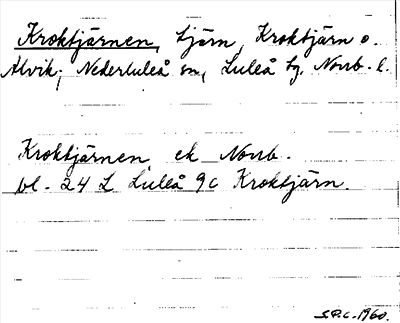 Kroktjärnen, tjärn, Kroktjärn o.
Alvik, Nederluleå sn, Luleå tg. Norrb. l.
Kroktjärnen ek Norrb.
bl. 24 L Luleå 9c Kroktjärn.
S.P.C. 1960.